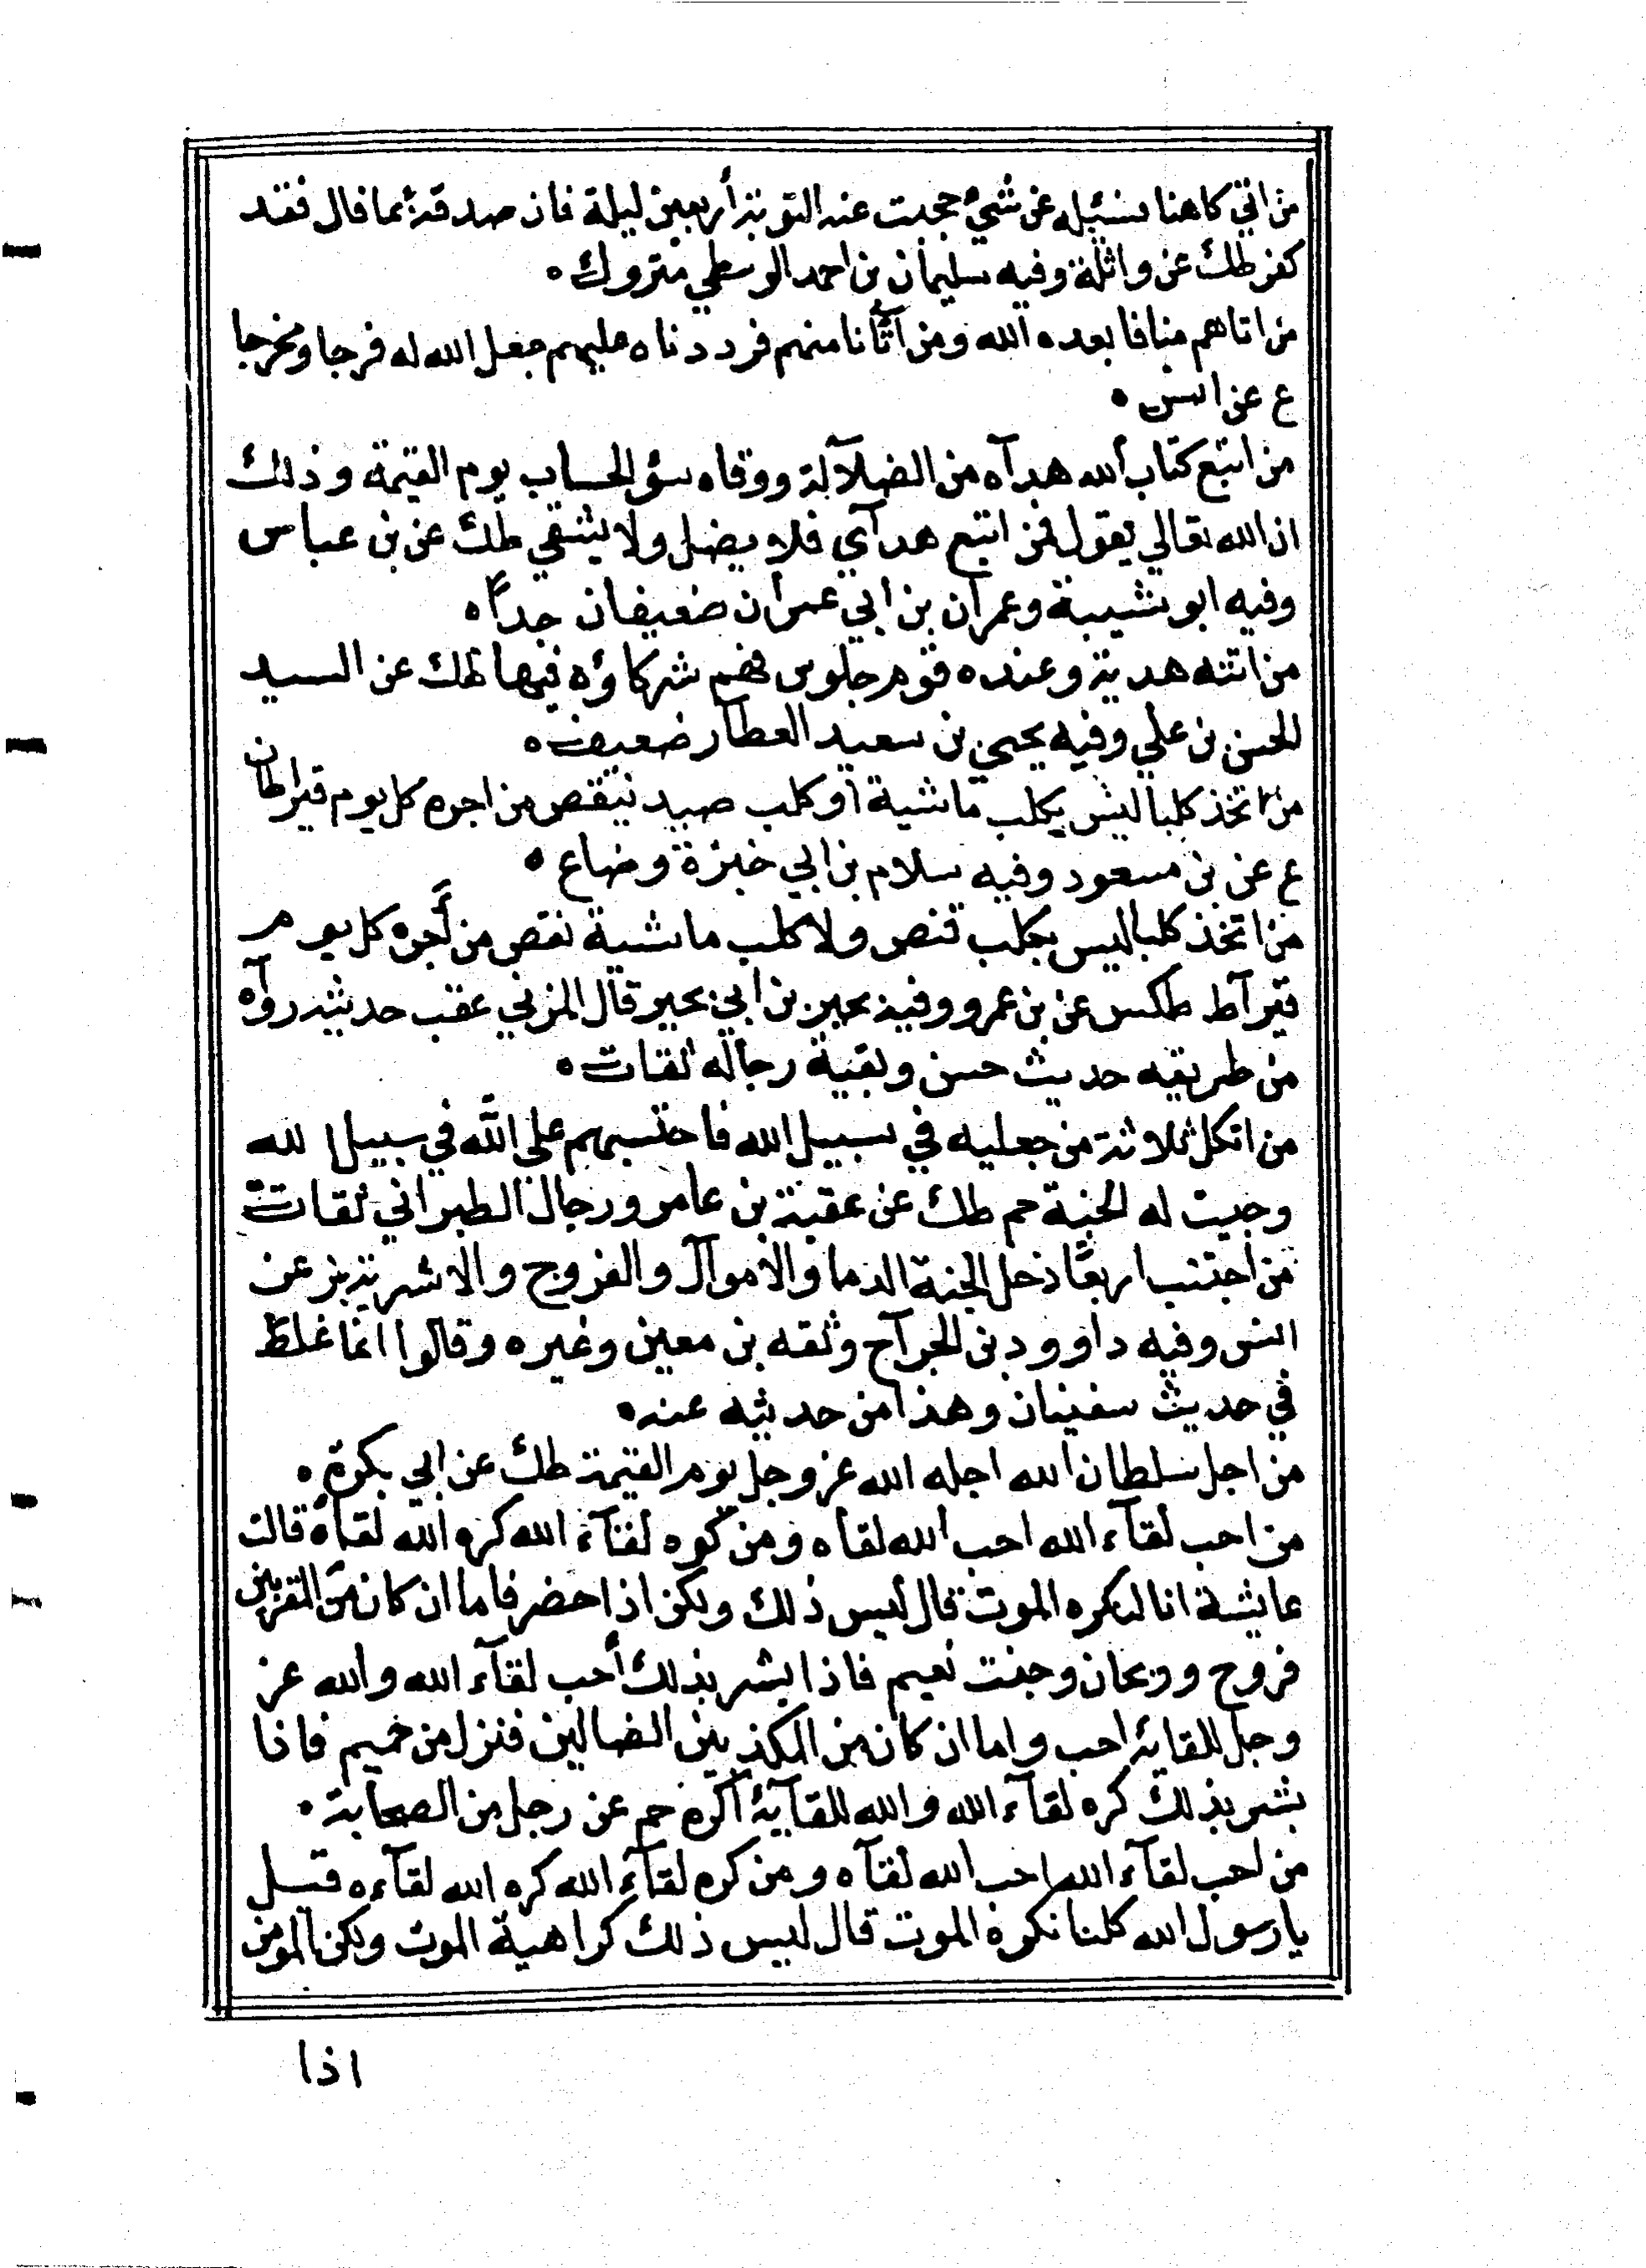 من اتي كاهنا فسئله عن شيء حجبت عنه التوبة أربعين ليلة فان صدقه بما قال فقد
كفر طك عن واثلة وفيه سليمان بن احمد الوسطي متروك ه
من اتاهم منافا بعده الله ومن أتانا منهم فرددناه عليهم جعل الله له فرجا ومخرجا
ع عن انس ه
من اتبع كتاب الله هدآه من الضلآلة ووقاه سؤ الحساب يوم القيمة وذلك
ان الله تعالي يقول فمن اتبع هدآي فلا يضل ولا يشقي طك عن بن عباس
وفيه ابو شيبة وعمران بن ابي عمران ضعيفان جداً ه
من اتته هدية وعنده قوم جلوس فهم شركاؤه فيها طك عن السيد
الحسن بن علي وفيه يحيي بن سعيد العطار ضعيف ه
من اتخذ كلبا ليس بكلب ماشية أو كلب صيد ينتقص من اجره كل يوم قيراطان
ع عن بن مسعود وفيه سلام بن ابي خبزة وضاع ه
من اتخذ كلبا ليس بكلب قنص ولا كلب ماشية نقص من أجره كل يوم
قيرآط طكس عن بن عمرو وفيه بحير بن ابي بحير قال المزني عقب حديثه رواه
من طريقه حديث حسن وبقية رجاله ثقات ه
من اتكل ثلاثة من جعليه في سبيل الله فاحتسبهم على الله في سبيل الله
وجبت له الجنة حم طك عن عقبة بن عامر ورجال الطبراني ثقات
من اجتنب اربعا دخل الجنة الدما والأموآل والفروج والاشربة بز عن
انس وفيه داوود بن الجرآح وثقه بن معين وغيره وقالوا انما غلط
في حديث سفينان وهذا من حديثه عنه ه
من اجل سلطان الله اجله الله عز وجل يوم القيمة طك عن ابي بكرة ه
من احب لقآء الله احب الله لقاه ومن كره لقآء الله كره الله لقاه قالت
عايشة انا لنكره الموت قال ليس ذلك ولكن اذا حضر فاما ان كان من المقربين
فروح وريحان وجنت نعيم فاذا بشر بذلك أحب لقآء الله والله عز
وجل للقايه احب واما ان كان من المكذبين الضالين فنزل من حميم فاذا
بشر بذلك كره لقآء الله والله للقآيه أكره حم عن رجل من الصحابة ه
من احب لقآء الله احب الله لقآه ومن كره لقآء الله كره الله لقآءه قيل
يا رسول الله كلنا نكره الموت قال ليس ذلك كراهية الموت ولكن المومن
اذا